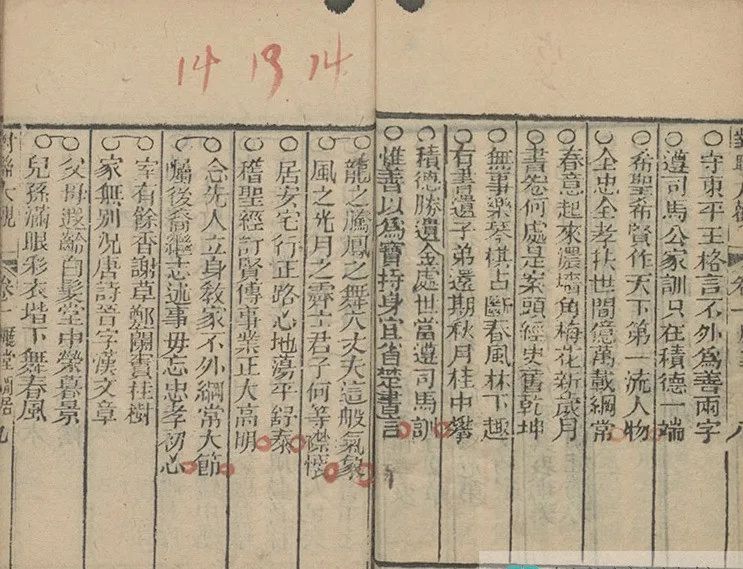 守東平王格言不外為善兩字
遵司馬公家訓只在積德一端
希聖希賢作天下第一流人物
全忠全孝扶世間億萬載綱常
春意起來濃墻角梅花新歲月
書卷何處是案頭經史舊乾坤
無事樂琴棋占斷春風林下趣
右書遺子弟還期秋月桂中攀
積德勝遺金處世當遵司馬訓
惟善以為寶持身宜省楚書言
卷一
八
14 13 14
龍之騰鳳之舞大丈夫這般氣象
風之光月之霽士君子何等襟懷
居安宅行正路心地蕩平舒泰
稽聖經訂賢傳事業正大高明
念先人立身教家不外綱常大節
囑後裔繼志述事毋忘忠孝初心
室有餘香謝草鄭蘭竇桂樹
家無別況唐詩晉字漢文章
父母遐齡白髮堂中榮暮景
兒孫滿眼彩衣堦下舞春風
對聯大觀 卷一 廳堂 九